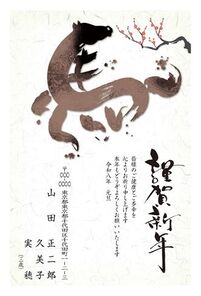 謹賀新年
皆様のご健康とご多幸を
心よりお祈り申し上げます
本年もどうぞよろしくお願いいたします
令和八年 元旦
〒〇〇〇-〇〇〇〇
東京都東京都千代田区千代田町一-二-三
山田 正二郎
久美子
実穂